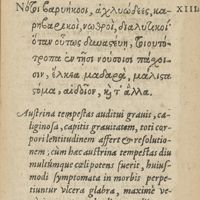 Νότοι βαρυήκοοι, ἀχλυώδεες, κα- XIII
ρηβαρικοὶ, νωθροὶ, διαλυτικοὶ
ὅταν οὗτος δυναστεύῃ, τοιουτό
τροπα ἐν τῇσι νούσοισι πάσχου
σιν, ἕλκεα μαδαρὰ, μάλιστα
στόμα, αἰδοῖον, καὶ τ' ἄλλα.
Austrina tempestas auditui grauis, ca-
liginosa, capitis grauitatem, toti cor-
pori lentitudinem affert & resolutio-
nem, cùm hæc austrina tempestas diu
multúmque cœli potens fuerit, huius-
modi symptomata in morbis perpe-
tiuntur vlcera glabra, maximè ve-